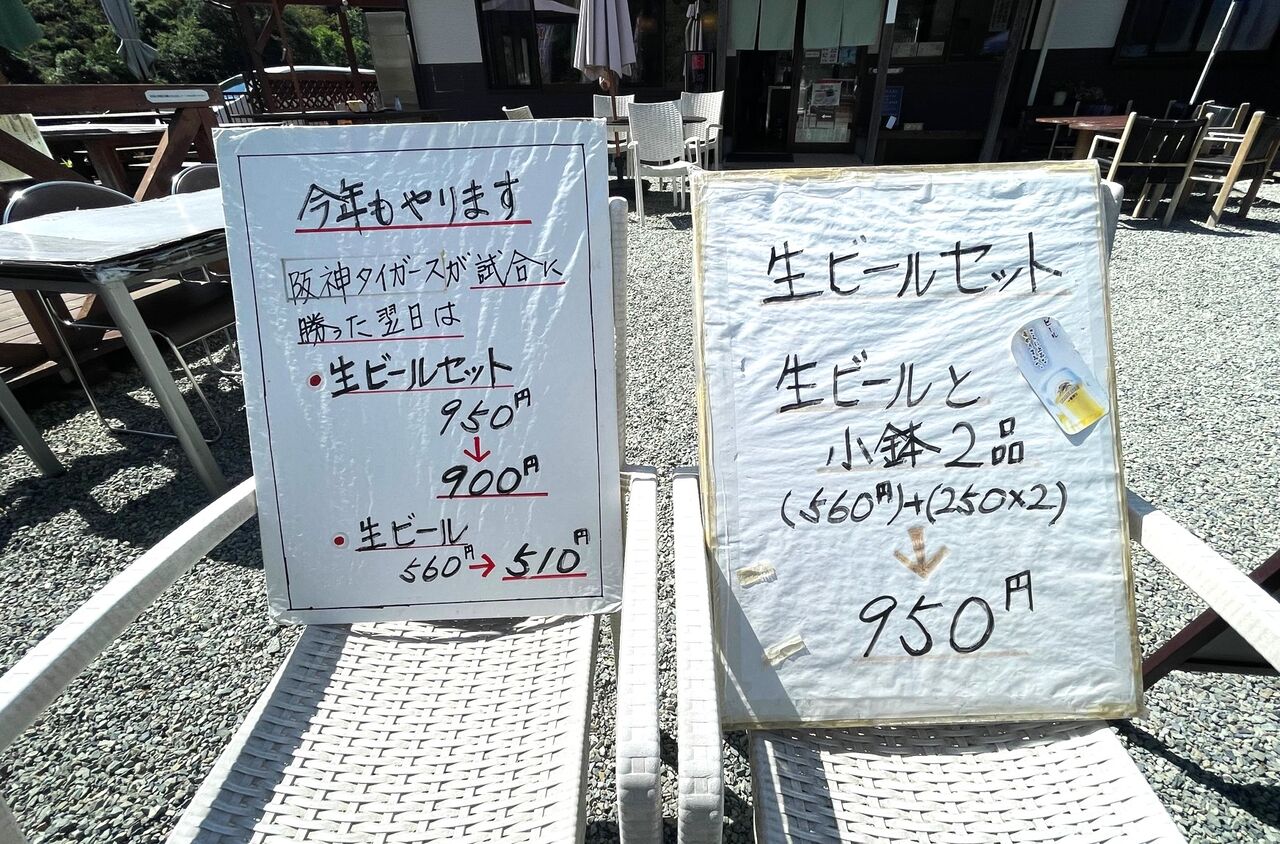 今年もやります
阪神タイガースが試合に
勝った翌日は
•生ビールセット
950円
↓
900円
•生ビール
560円→510円
生ビールセット
生ビールと
小鉢2品
(560円)+(250×2)
↓
950円